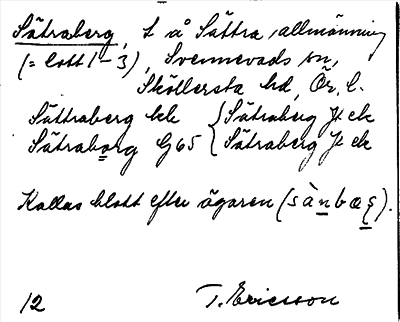 Sätraberg, t å Sättra, allmänning
(= lott 1 – 3), Svennevads sn,
Sköllersta hd, Ör. l.
Sättraberg kk { Sätraberg Jt ek
Sätraborg G65 { Sätraberg Jt ek
Kallas blott efter ägaren (sànbæş).
12 T. Ericsson